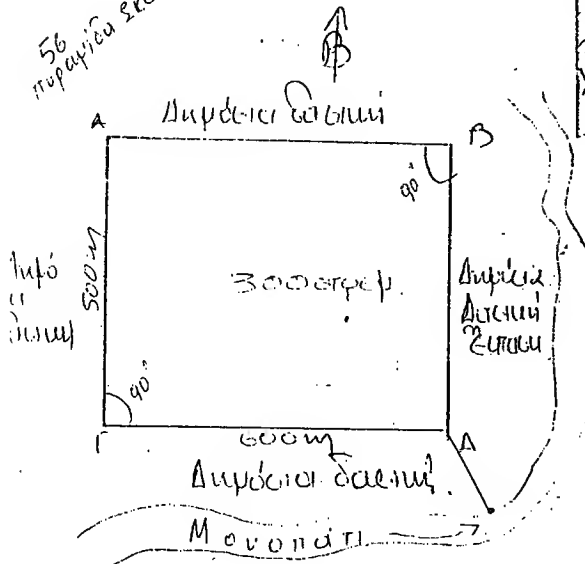 56
πυραμίδα
Β
Δημόσια δασική
Α
Β
90°
500m
300στρεμ.
Δημόσια
Δασική
Έκταση
90°
Γ
600m
Δ
Δημόσια δασική
Μονοπάτι